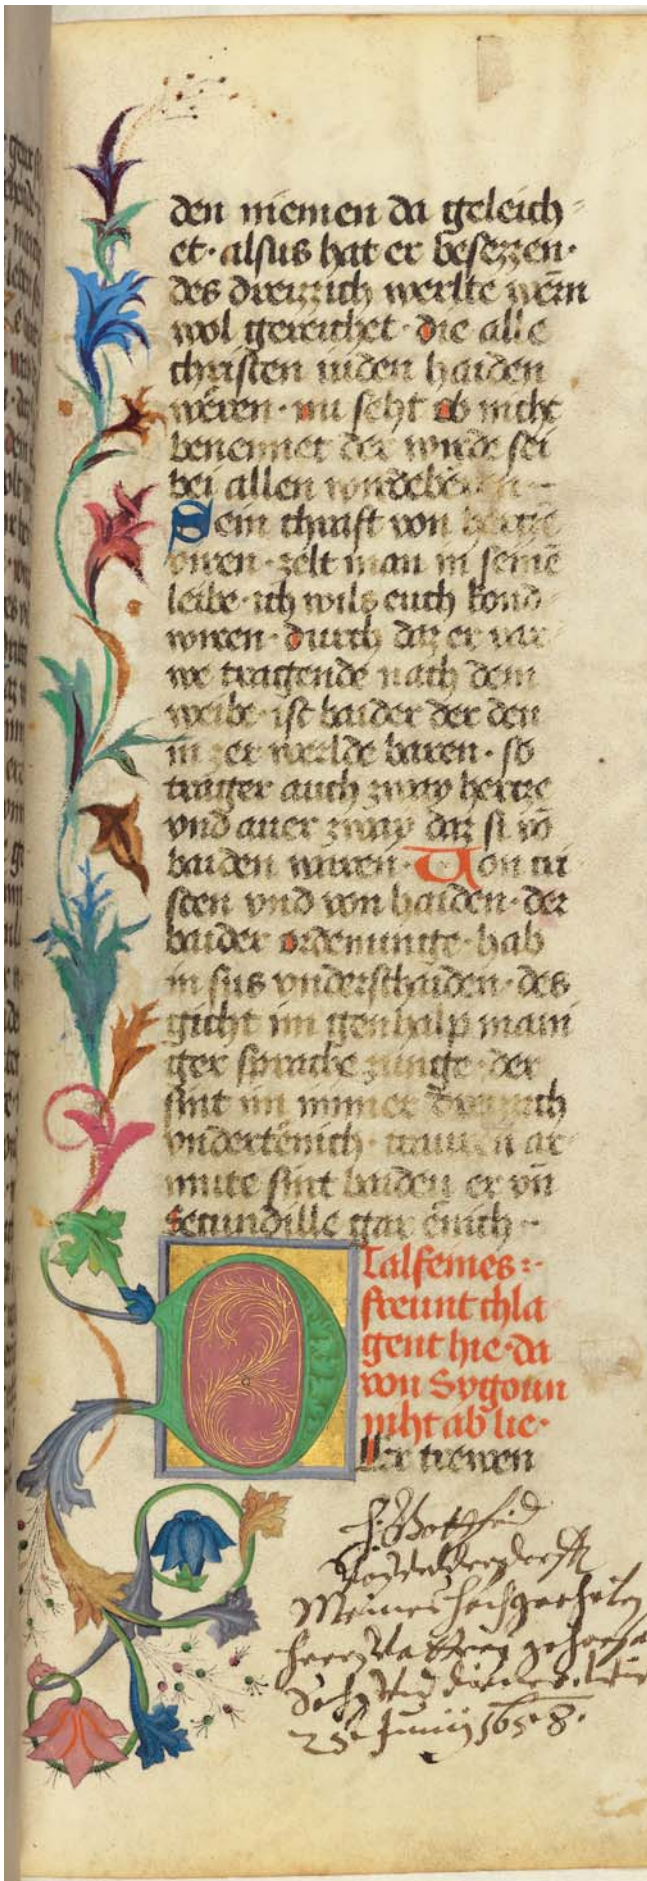 den niemen da geleich⸗
et· alsus hat er besezzen·
des dreizzich werlte wern̄
wol gereichet· die alle
christen in den haiden
wēren· nu seht ob nicht
benennet der wirde sei
bei allen
Sein chraft von
owen· zelt man in seinē
leibe· ich wils euch kond
wiren· durch daz er var
we tragende nach dem
weibe· ist baider der den
in zer werlde baren· so
trager auch zway hertze
vnd auer zway daz si vō
baiden waren· Von cri
sten vnd von haiden· der
baider ordenunge· hab
in sus vnderschaiden· des
gicht im genhalp mani
ger sprache zunge· der
sint im immer dreizzich
vndertēnich· ar
mute sint baiden er vn̄
Secundille gar ēnich
Talfemes:·
freunt chla
gent hie· da
von Sygoun
niht ab lie·
ller trewen
Meines
25 Junij 1658·